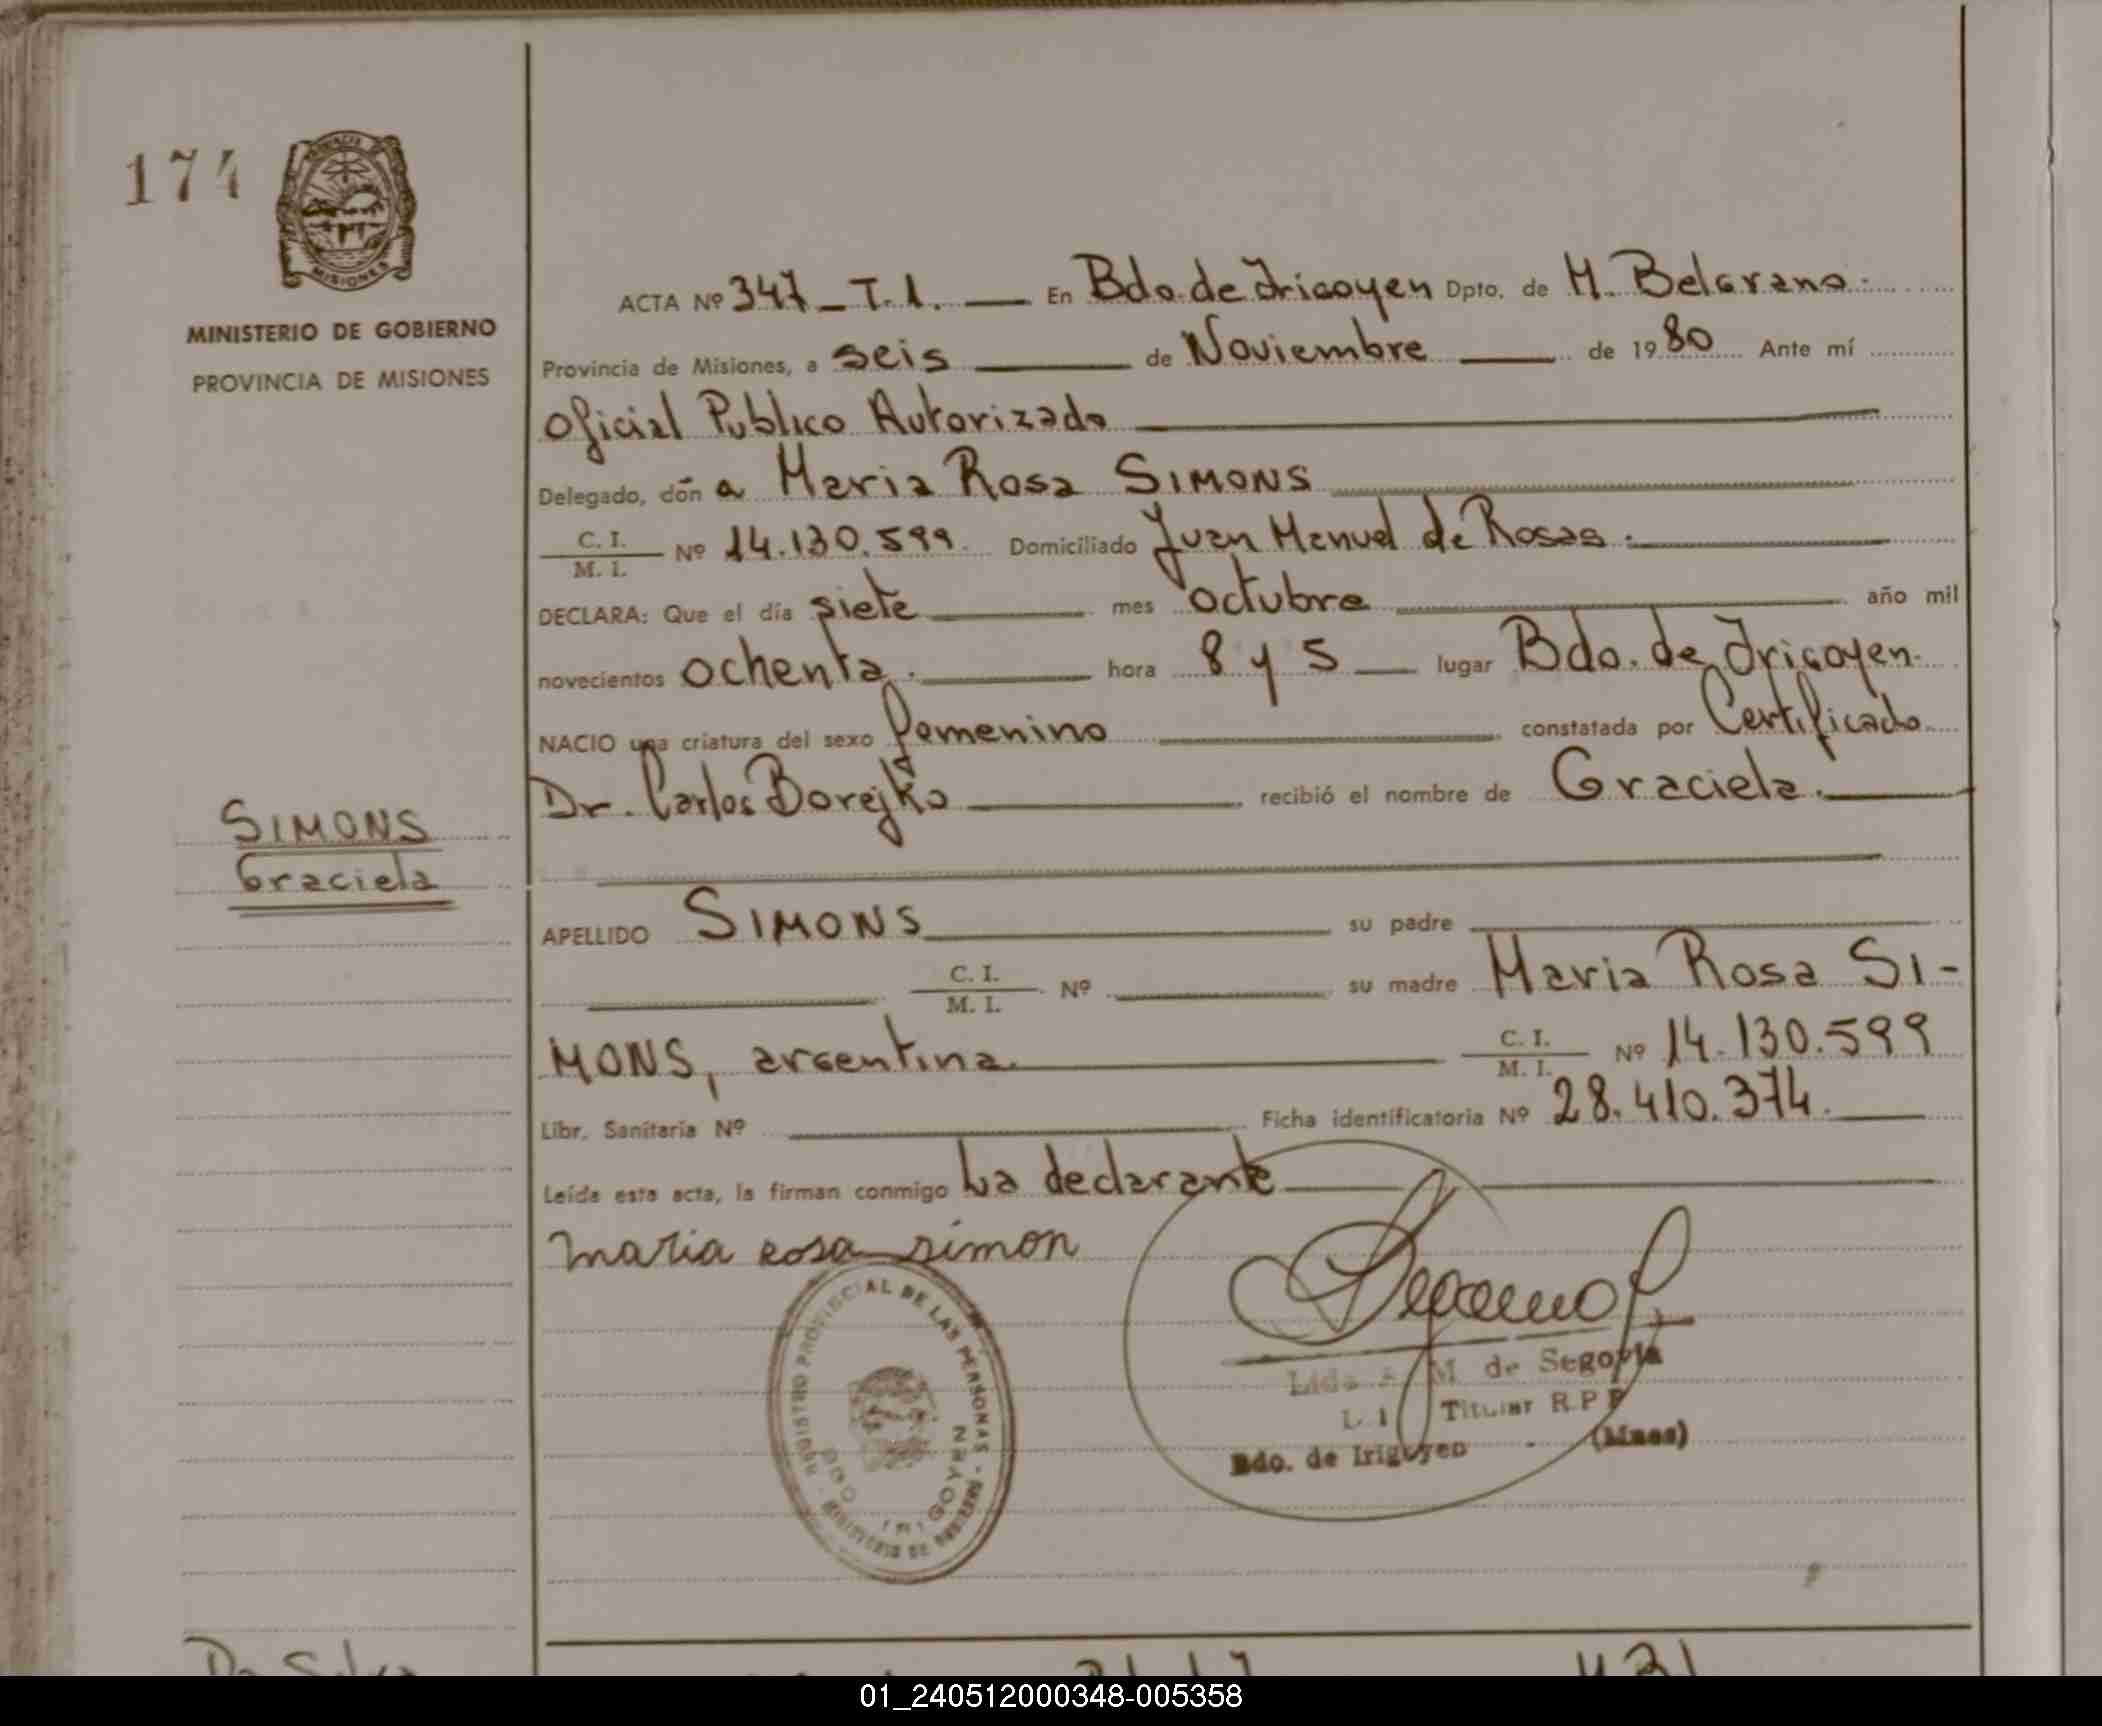 174
MISIONES
MINISTERIO DE GOBIERNO
PROVINCIA DE MISIONES
ACTA Nº 347 - T. 1. En Bdo. de Irigoyen Dpto. de M. Belgrano.
Provincia de Misiones, a seis de Noviembre de 1980 Ante mí
Oficial Publico Autorizado
Delegado, don a Maria Rosa SIMONS
C. I.
M. I. Nº 14.130.599. Domiciliado Juan Manuel de Rosas.
DECLARA: Que el día siete mes octubre año mil
novecientos ochenta. hora 8 y 5 lugar Bdo. de Irigoyen.
NACIO una criatura del sexo femenino constatada por Certificado
Dr. Carlos Borejko recibió el nombre de Graciela.
SIMONS
Graciela
APELLIDO SIMONS su padre
C. I.
M. I. Nº su madre Maria Rosa SI-
MONS, argentina C. I.
M. I. Nº 14.130.599
Libr. Sanitaria Nº Ficha identificatoria Nº 28.410.374.
Leída esta acta, la firman conmigo La declarante
maria rosa simon
REGISTRO PROVINCIAL DE LAS PERSONAS - MINISTERIO DE
BDO IRIGOYEN
M. de Segovia
Titular R.P.P
Bdo. de Irigoyen (Mnes)
01_240512000348-005358